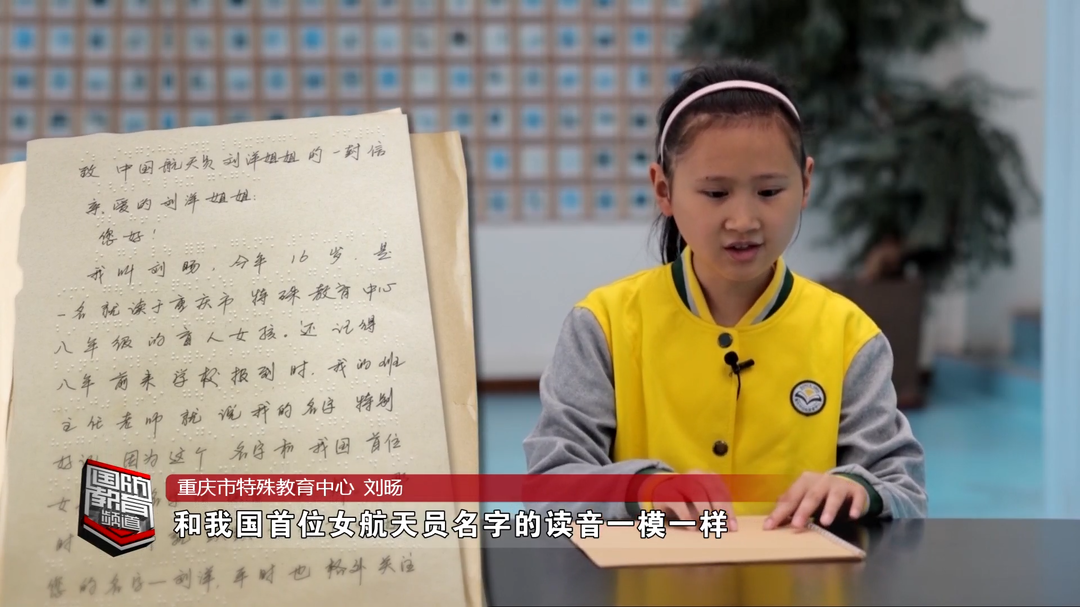 致 中国航天员刘洋姐姐的一封信
亲爱的刘洋姐姐:
您好!
我叫刘旸,今年16岁,是
一名就读于重庆市特殊教育中心
八年级的盲人女孩。还记得
八年前来学校报到时,我的班
主任老师就说我的名字特别
好记,因为这个名字和我国首位
女
时
您的名字—刘洋,平时也格外关注
国防
教育
频道
重庆市特殊教育中心 刘旸
和我国首位女航天员名字的读音一模一样